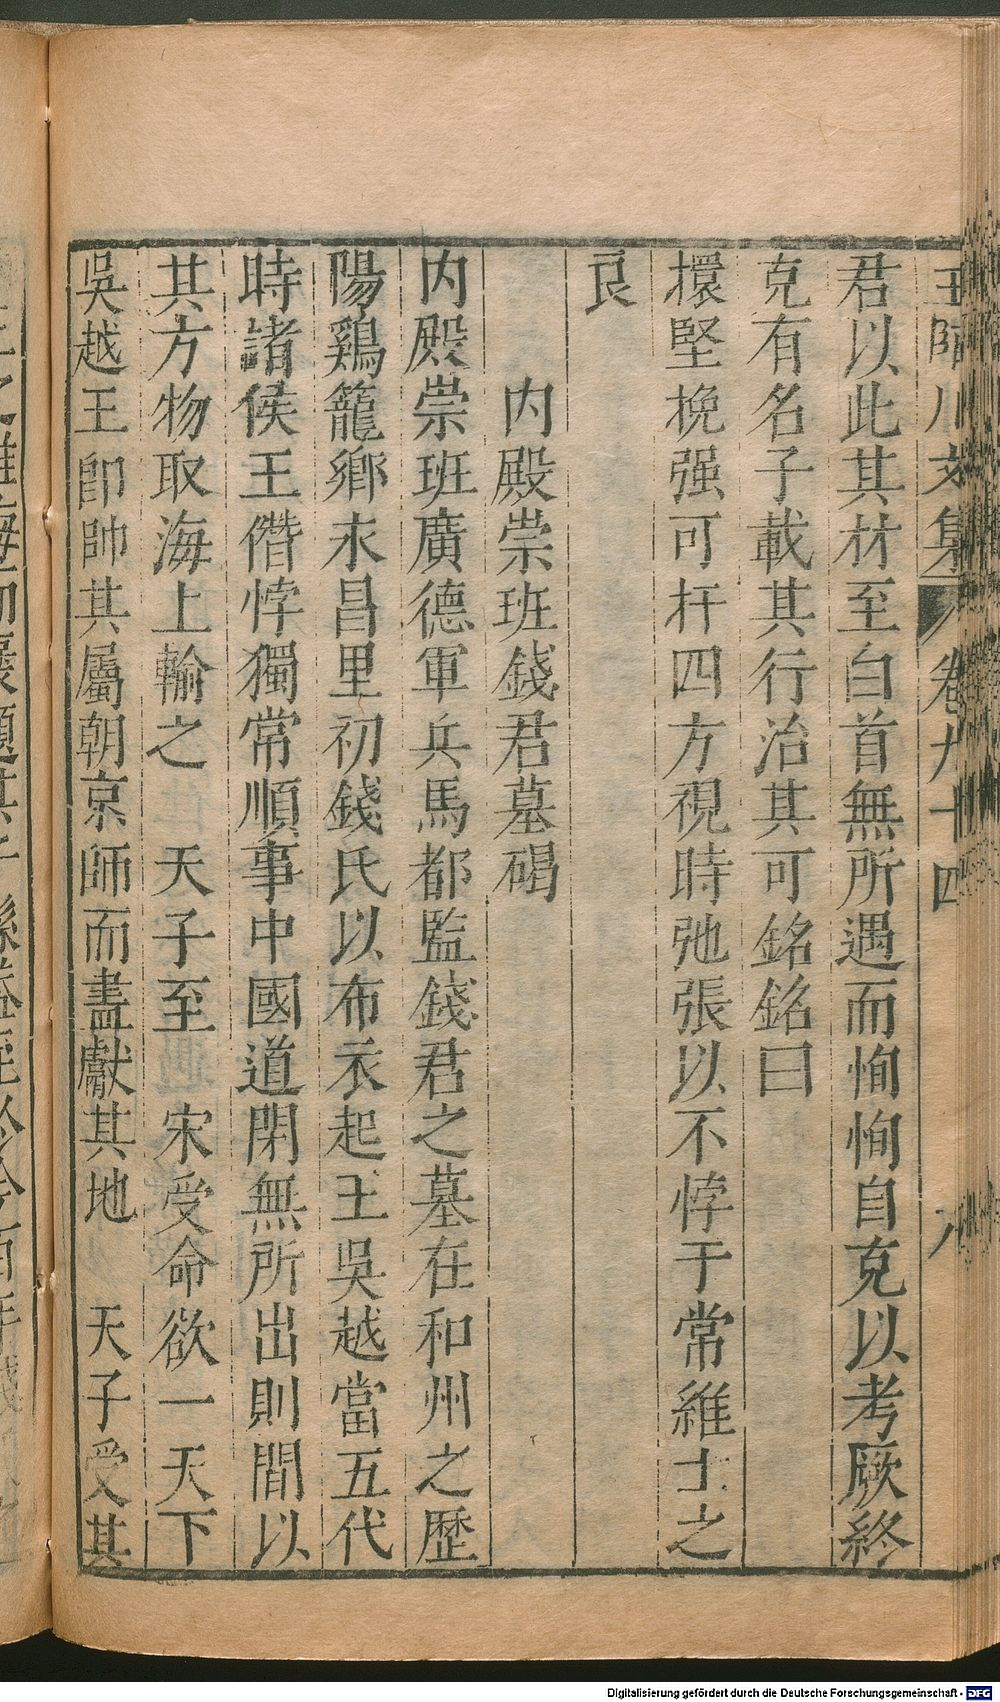 王臨川文集 卷九十四 八
君以此其材至白首無所遇而恂恂自克以考厥終
克有名子載其行治其可銘銘曰
擐堅挽强可扞四方視時弛張以不悖于常維士之
良
內殿崇班錢君墓碣
內殿崇班廣德軍兵馬都監錢君之墓在和州之歷
陽鷄籠鄉永昌里初錢氏以布衣起王吳越當五代
時諸侯王僭悖獨常順事中國道閉無所出則間以
其方物取海上輸之 天子至 宋受命欲一天下
吳越王卽帥其屬朝京師而盡獻其地 天子受其
Digitalisierung gefördert durch die Deutsche Forschungsgemeinschaft - DFG